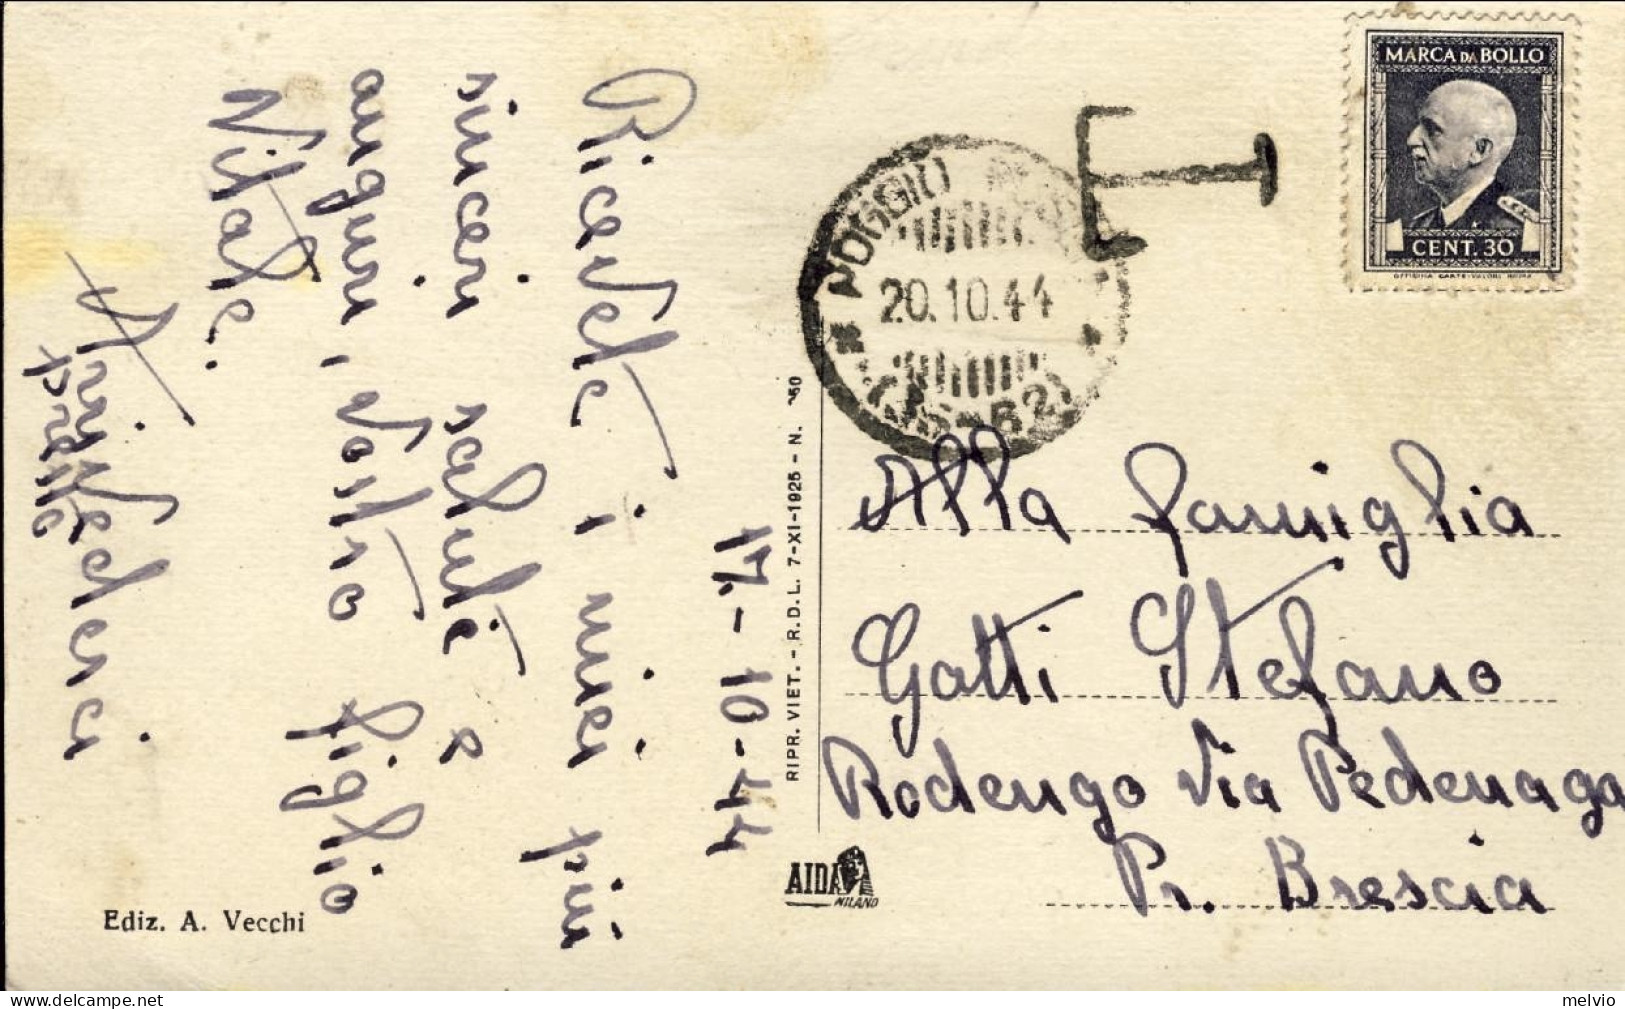 MARCA DA BOLLO
CENT. 30
OFFICINA CARTE-VALORI ROMA
T
POGGIO
20.10.44
17-10-44
Ricevete i miei più
sinceri saluti e
auguri, Vostro figlio
Vitale.
Arrivederci
presto
RIPR. VIET. - R.D.L. 7-XI-1925 - N.
Alla famiglia
Gatti Stefano
Rodengo Via Pedenaga
Pr. Brescia
AIDA
MILANO
Ediz. A. Vecchi
melvio